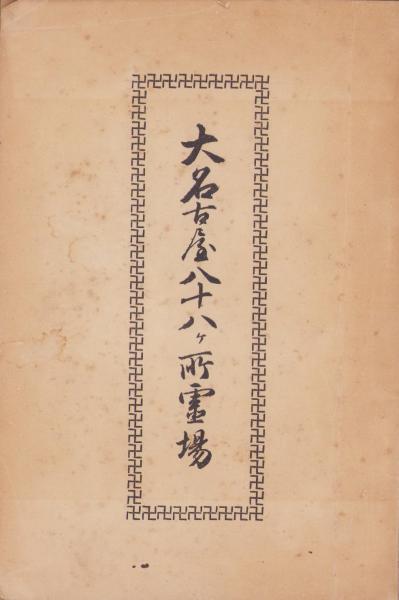 大名古屋八十八ヶ所霊場